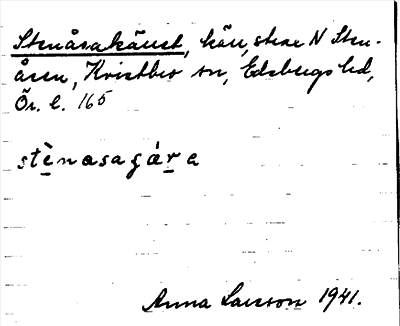 Stenåsakäret, kärr, strax N Sten-
åsen, Kvistbro sn, Edsbergs hd,
Ör. l. 165
stènasaǥára
Anna Larsson 1941.